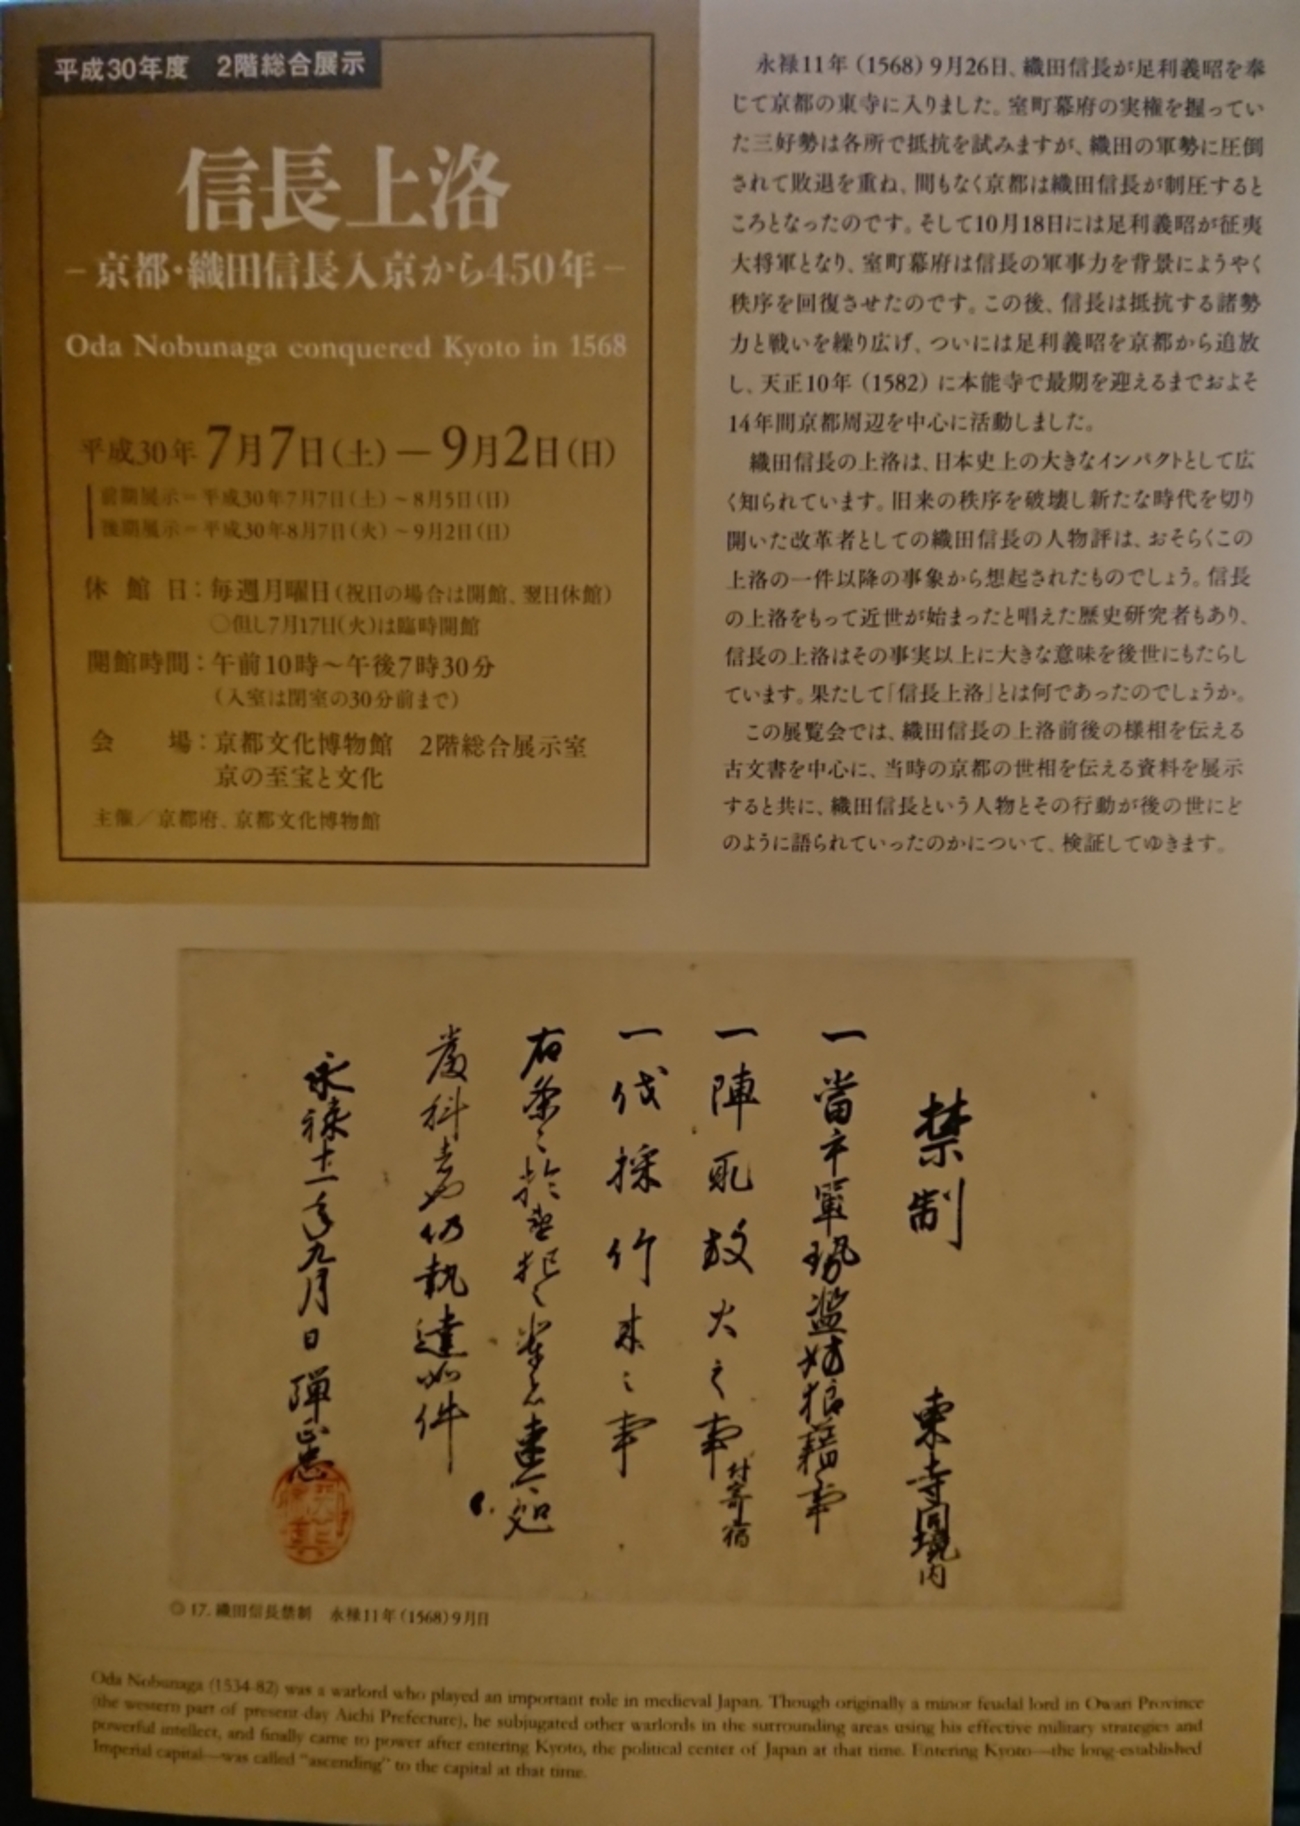 平成30年度　2階総合展示
信長上洛
－京都・織田信長入京から450年－
Oda Nobunaga conquered Kyoto in 1568
平成30年 7月7日(土)－9月2日(日)
前期展示＝平成30年7月7日(土)～8月5日(日)
後期展示＝平成30年8月7日(火)～9月2日(日)
休館日：毎週月曜日(祝日の場合は開館、翌日休館)
○但し7月17日(火)は臨時開館
開館時間：午前10時～午後7時30分
(入室は閉室の30分前まで)
会場：京都文化博物館　2階総合展示室
京の至宝と文化
主催／京都府、京都文化博物館
永禄11年（1568）9月26日、織田信長が足利義昭を奉
じて京都の東寺に入りました。室町幕府の実権を握ってい
た三好勢は各所で抵抗を試みますが、織田の軍勢に圧倒
されて敗退を重ね、間もなく京都は織田信長が制圧すると
ころとなったのです。そして10月18日には足利義昭が征夷
大将軍となり、室町幕府は信長の軍事力を背景にようやく
秩序を回復させたのです。この後、信長は抵抗する諸勢
力と戦いを繰り広げ、ついには足利義昭を京都から追放
し、天正10年（1582）に本能寺で最期を迎えるまでおよそ
14年間京都周辺を中心に活動しました。
織田信長の上洛は、日本史上の大きなインパクトとして広
く知られています。旧来の秩序を破壊し新たな時代を切り
開いた改革者としての織田信長の人物評は、おそらくこの
上洛の一件以降の事象から想起されたものでしょう。信長
の上洛をもって近世が始まったと唱えた歴史研究者もあり、
信長の上洛はその事実以上に大きな意味を後世にもたらし
ています。果たして「信長上洛」とは何であったのでしょうか。
この展覧会では、織田信長の上洛前後の様相を伝える
古文書を中心に、当時の京都の世相を伝える資料を展示
すると共に、織田信長という人物とその行動が後の世にど
のように語られていったのかについて、検証してゆきます。
禁制　東寺同境内
一當手軍勢濫妨狼藉事
一陣取放火之事付寄宿
一伐採竹木之事
右条々於違犯之輩者速可処
厳科者也仍執達如件
永禄十一年九月日 弾正忠
◎17. 織田信長禁制　永禄11年(1568)9月日
Oda Nobunaga (1534-82) was a warlord who played an important role in medieval Japan. Though originally a minor feudal lord in Owari Province
(the western part of present-day Aichi Prefecture), he subjugated other warlords in the surrounding areas using his effective military strategies and
powerful intellect, and finally came to power after entering Kyoto, the political center of Japan at that time. Entering Kyoto—the long-established
Imperial capital—was called "ascending" to the capital at that time.